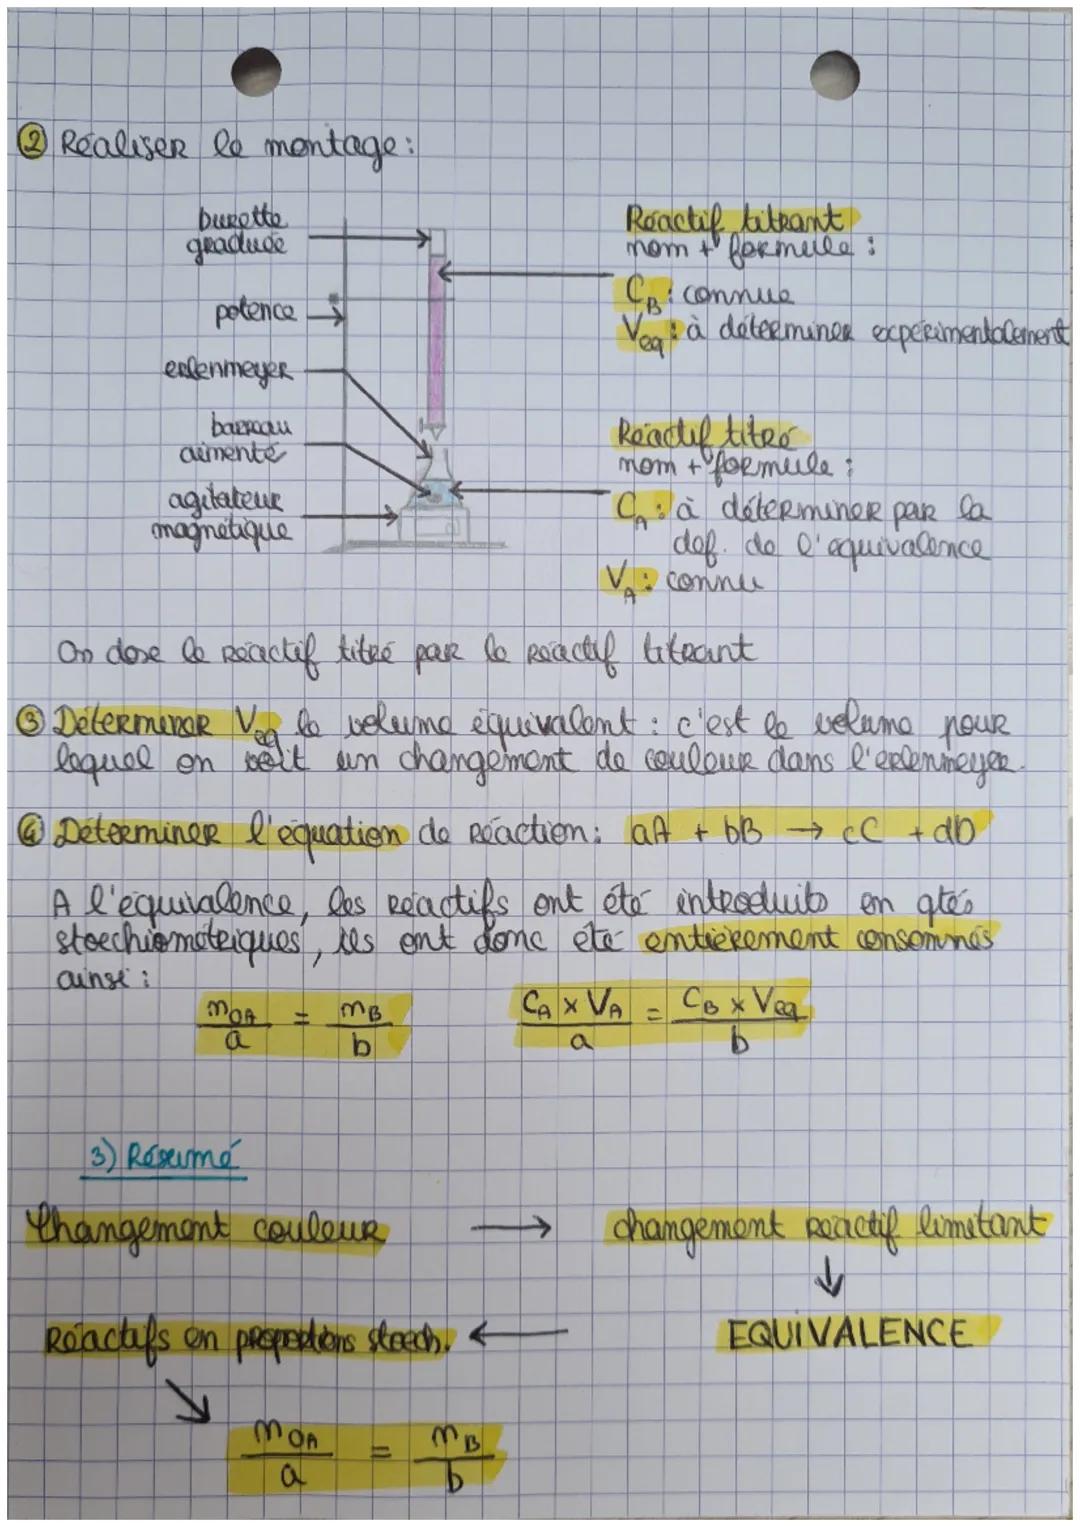 ② Réaliser le montage :
burette
graduée
potence
erlenmeyer
barreau
aimanté
agitateur
magnétique
Réactif titrant
nom + formule :
C_B : connue
V_eq : à déterminer expérimentalement
Réactif titré
nom + formule :
C_A : à déterminer par la
def. de l'équivalence
V_A : connu
On dose le réactif titré par le réactif titrant
③ Déterminer V_eq le volume équivalent : c'est le volume pour
lequel on voit un changement de couleur dans l'erlenmeyer.
④ Déterminer l'équation de réaction : aA + bB → cC + dD
A l'équivalence, les réactifs ont été introduits en qtés
stoechiométriques, ils ont donc été entièrement consommés
ainsi :
n_0A / a = n_B / b
C_A × V_A / a = C_B × V_eq / b
3) Résumé
Changement couleur → changement réactif limitant
↓
Réactifs en proportions stoech. ← EQUIVALENCE
↘
n_0A / a = n_B / b